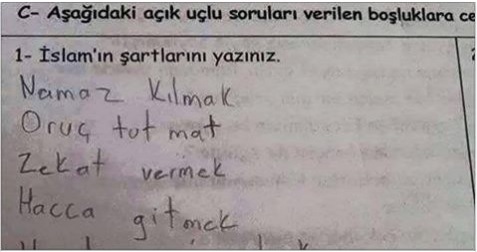 C- Aşağıdaki açık uçlu soruları verilen boşluklara ce
1- İslam'ın şartlarını yazınız.
Namaz Kılmak
Oruç tutmat
Zekat vermek
Hacca gitmek